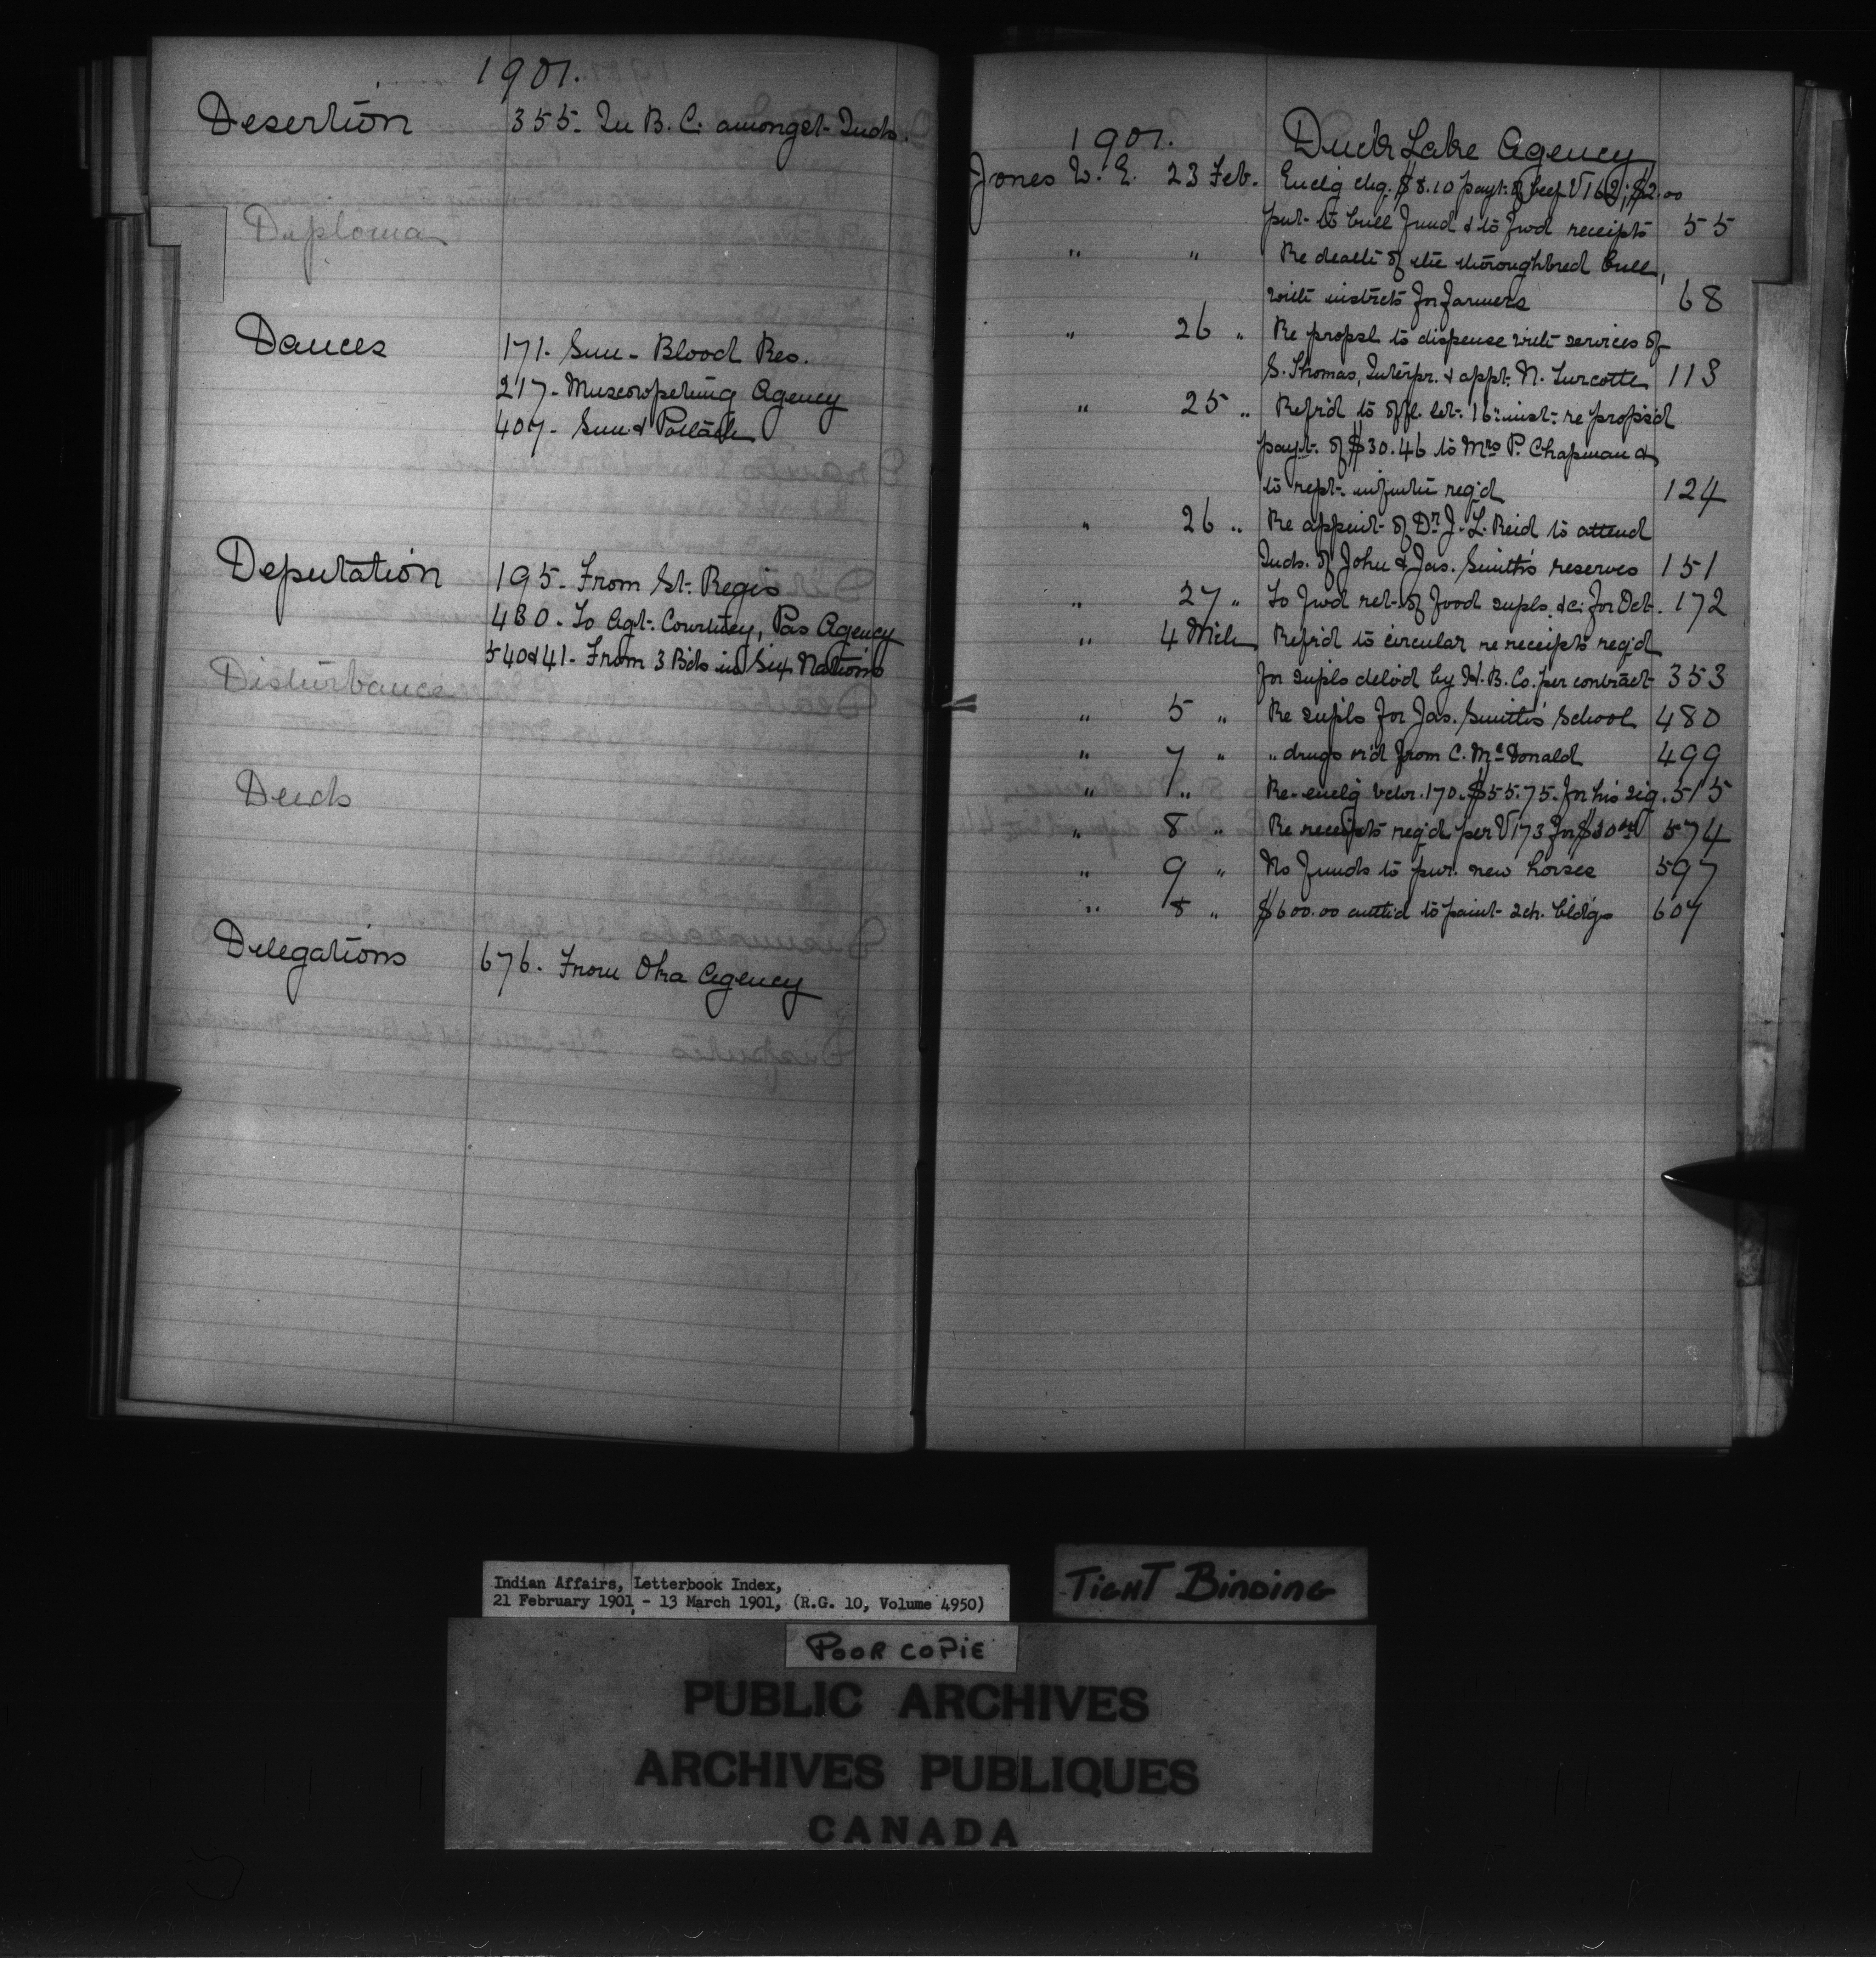 1901.
Desertion 355. In B.C. amongst Inds.
Diploma
Dances 171. Sun - Blood Res.
217. Muscowpetung Agency
407. Sun & Potlach
Deputation 195. From St. Regis
480. To Agt. Courtney, Pas Agency
540 & 41. From 3 Bds in Six Nations
Disturbance
Deeds
Delegations 676. From Oka Agency
1901. Duck Lake Agency
Jones W. E. 23 Feb. Enclg chq. $8.10 payt. of beef V162; $2.00
put to bull fund & to fwd receipts 55
" " Re death of the thoroughbred bull,
with instrcts for farmers 68
" 26 " Re propsl to dispense with services of
S. Thomas, Interpr. & appt. N. Turcotte 113
" 25 " Refrd to offl. let. 16 inst. re propsd
payt. of $30.46 to Mrs P. Chapman &
to rept. infmtn reqd 124
" 26 " Re appmt of Dr J. L. Reid to attend
Inds. of John & Jas. Smith's reserves 151
" 27 " To fwd ret. of food supls. &c. for Oct. 172
" 4 Mch Refrd to circular re receipts reqd
for supls delivd by H.B. Co. per contract 353
" 5 " Re supls for Jas. Smith's School 480
" 7 " " drugs rd from C. McDonald 499
" " " Re-enclg vchr. 170. $55.75. for his sig. 515
" 8 " Re receipts reqd per V173 for $30 574
" 9 " No funds to pur. new horses 597
" 8 " $600.00 authd to paint sch. bldgs 607
Indian Affairs, Letterbook Index,
21 February 1901 - 13 March 1901, (R.G. 10, Volume 4950)
TIGHT BINDING
POOR COPIE
PUBLIC ARCHIVES
ARCHIVES PUBLIQUES
CANADA